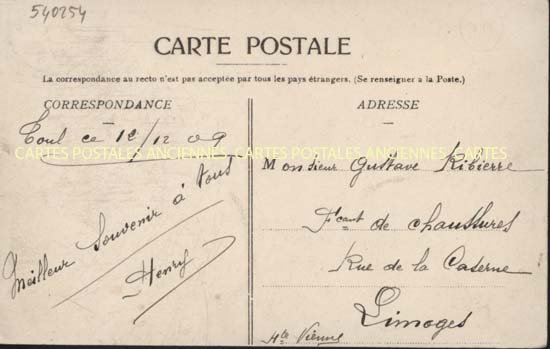 540254
CARTE POSTALE
La correspondance au recto n'est pas acceptée par tous les pays étrangers. (Se renseigner a la Poste.)
CORRESPONDANCE
Toul ce 12/12 09
Meilleur Souvenir à tous
Henry
ADRESSE
Monsieur Gustave Ribierre
Fcant de chaussures
Rue de la Caserne
Limoges
Hte Vienne
CARTES POSTALES ANCIENNES CARTES POSTALES ANCIENNES CARTES